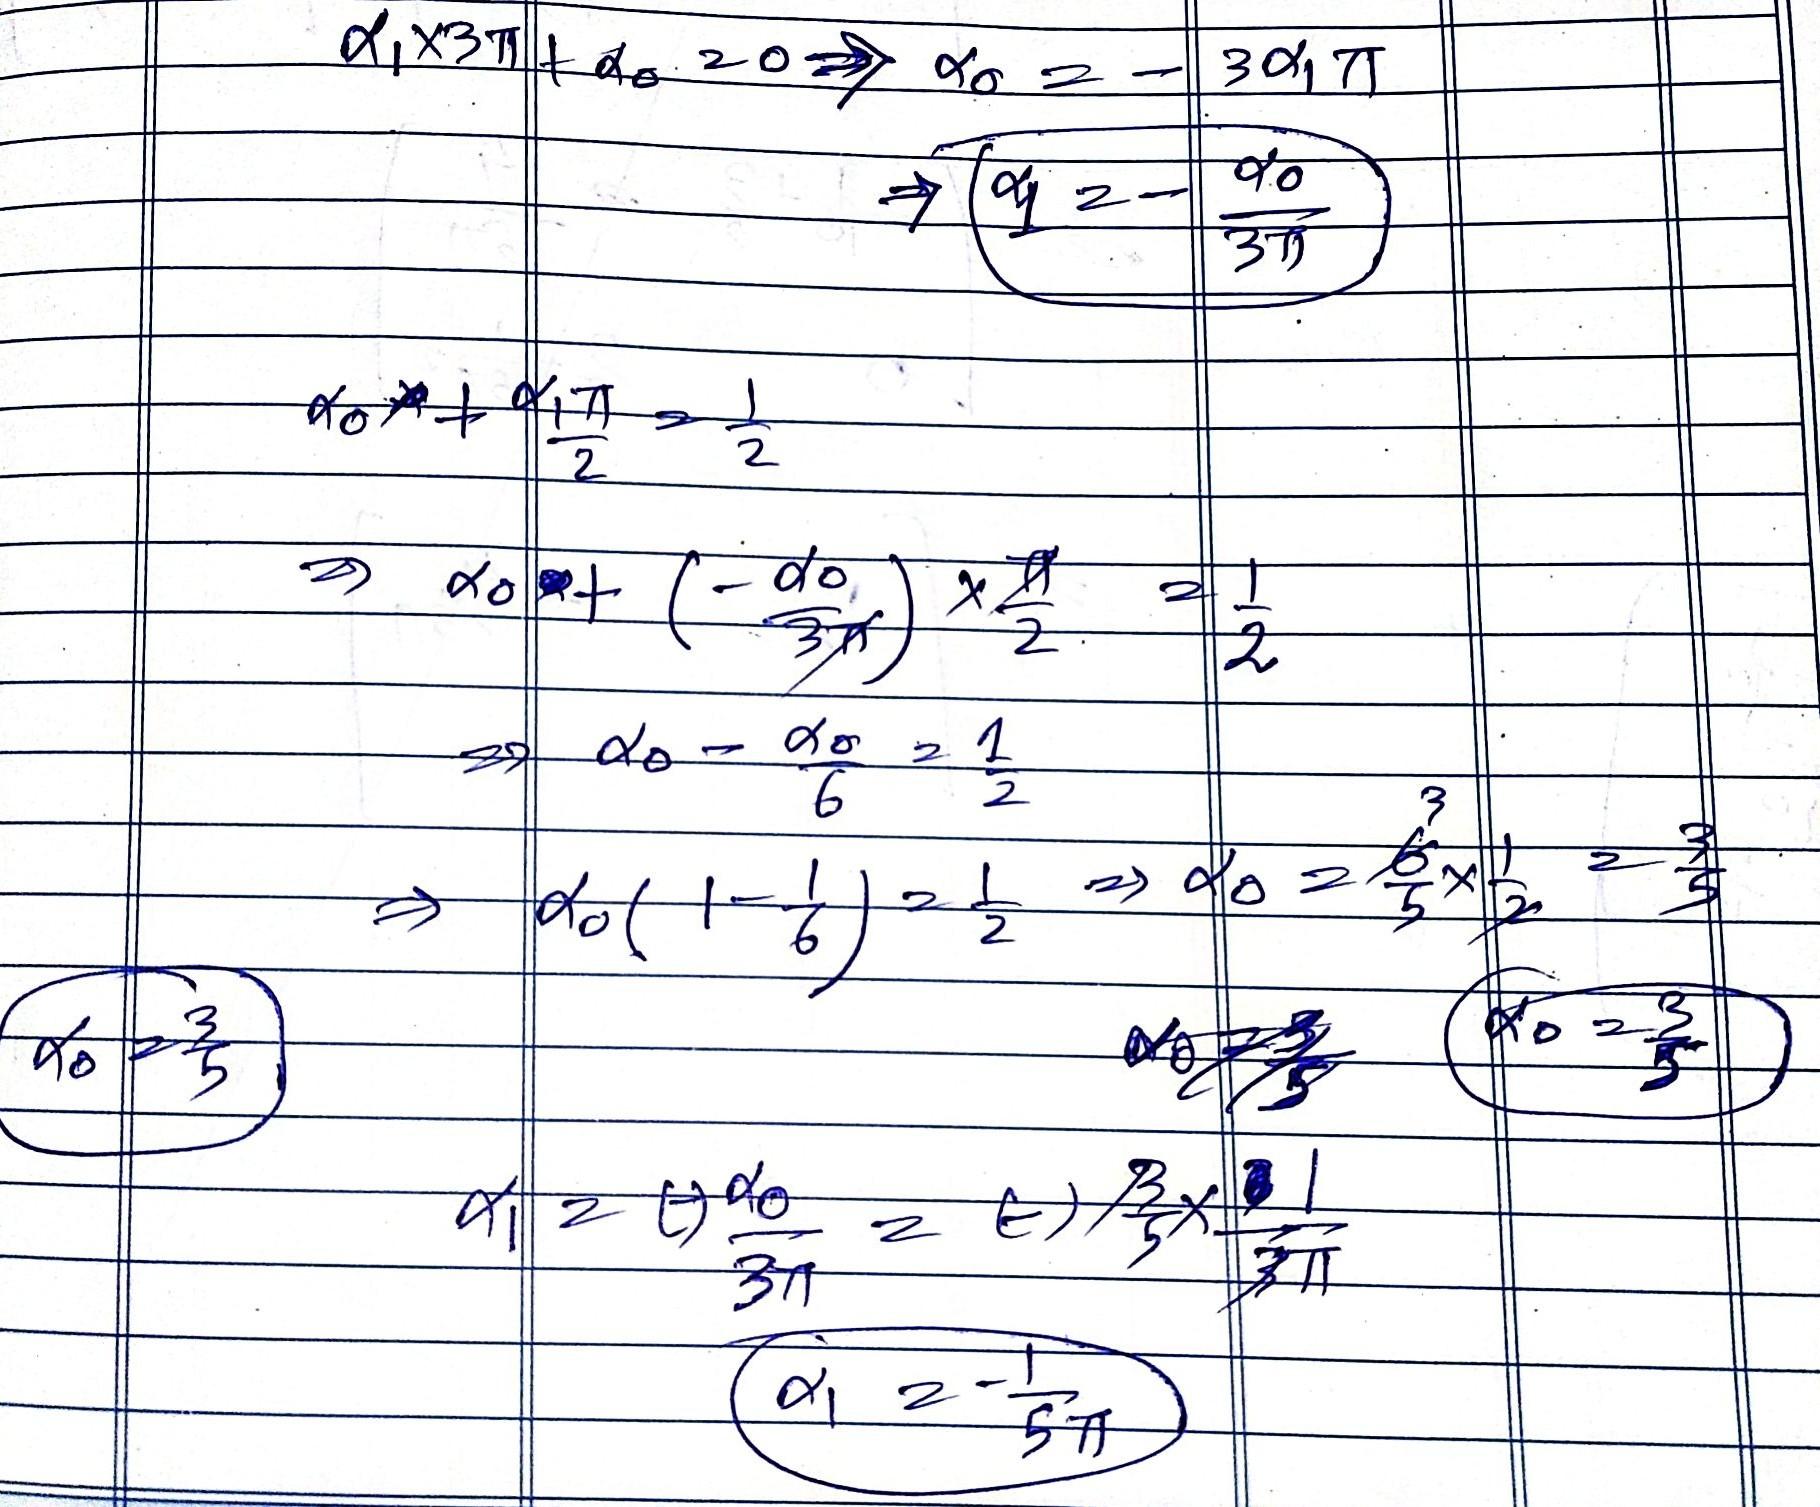 α₁×3π + α₀ = 0 ⇒ α₀ = - 3α₁π
⇒ α₁ = - α₀/3π
α₀ + α₁π/2 = 1/2
⇒ α₀ + (- α₀/3π) × π/2 = 1/2
⇒ α₀ - α₀/6 = 1/2
⇒ α₀(1 - 1/6) = 1/2 ⇒ α₀ = 6/5 × 1/2 = 3/5
3
α₀ = 3/5
α₀ = 3/5
α₀ = 3/5
α₁ = (-) α₀/3π = (-) 3/5 × 1/3π
α₁ = - 1/5π